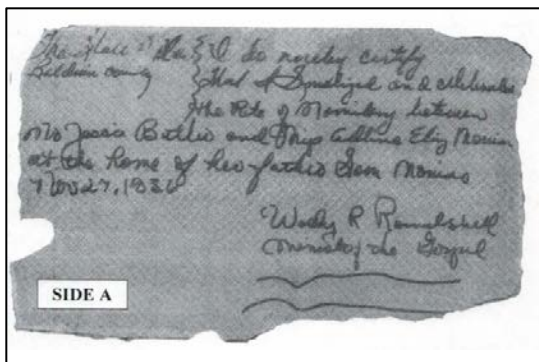 The State of Ala } I do hereby certify
Baldwin County } that I Solemnized and celebrated
the Rite of Matrimony between
Mr Jessie and Miss Eliz
at the home of her father
Nov 27, 1936
Wesley R
Minister of the Gospel
SIDE A